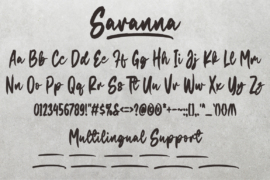 Savanna
Aa Bb Cc Dd Ee Ff Gg Hh Ii Jj Kk Ll Mm
Nn Oo Pp Qq Rr Ss Tt Uu Vv Ww Xx Yy Zz
0123456789!"#$%&<>?@@*+-~:;[],."^_`(){}M
Multilingual Support